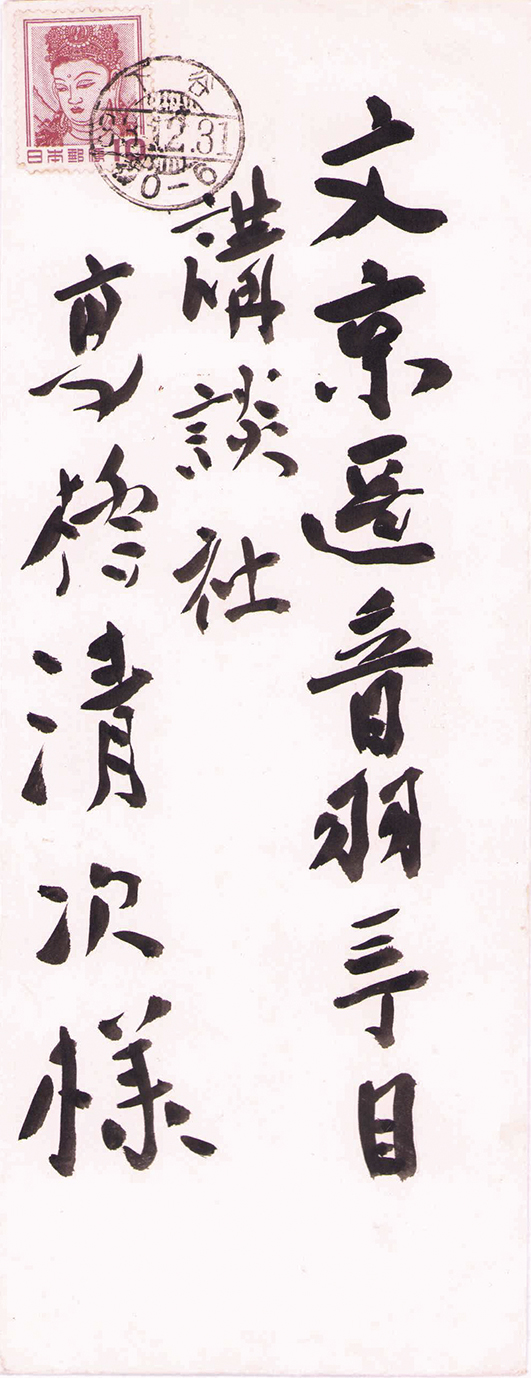 文京區音羽三丁目
講談社
高橋清次様
日本郵便
谷
12.31
0-6